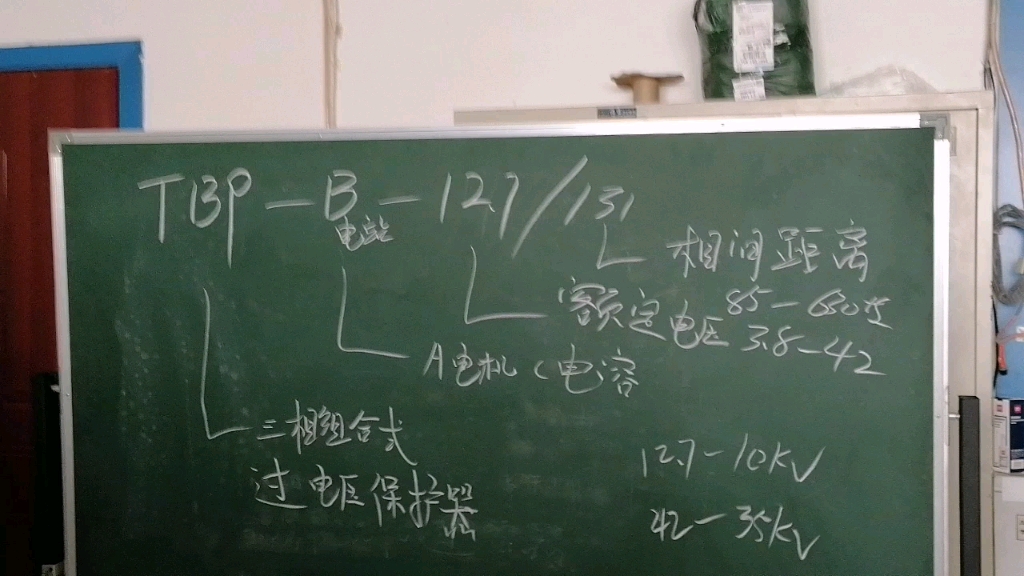 TBP-B-12.7/131
电站
相间距离
额定电压 3.8-42
A电机 C电容
三相组合式
过电压保护器
12.7-10kV
42-35kV